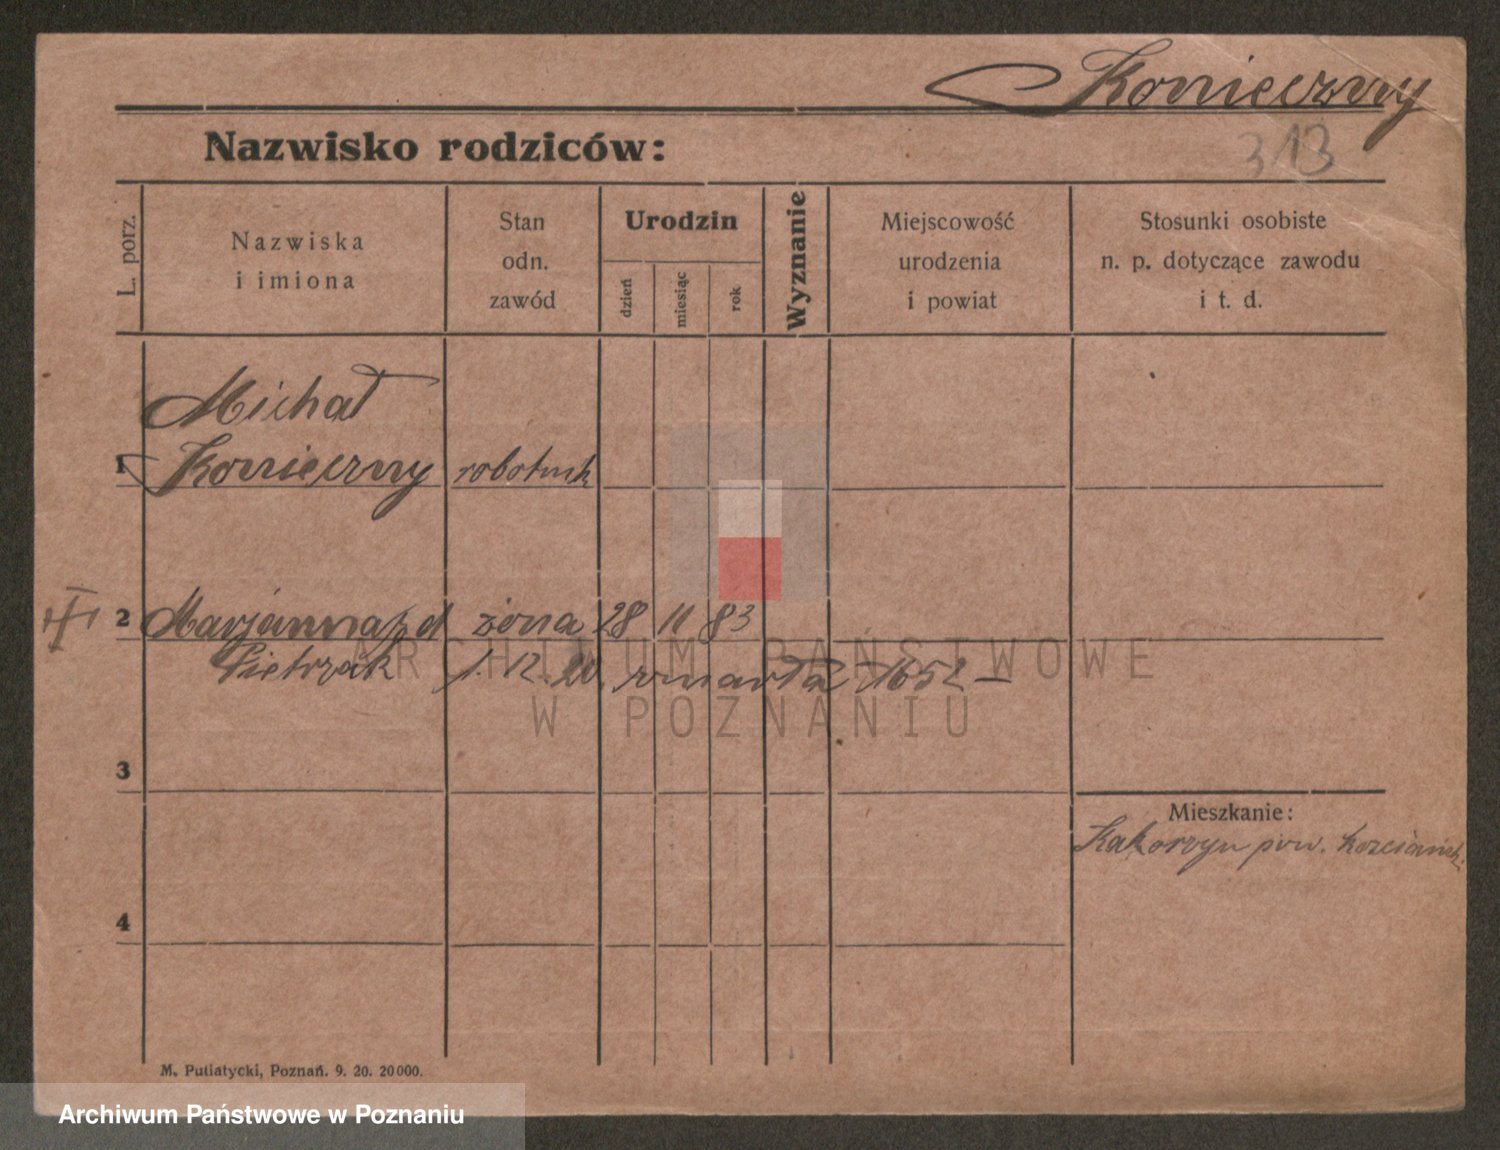 Konieczny
313
Nazwisko rodziców:
L. porz.
Nazwiska
i imiona
Stan
odn.
zawód
Urodzin
dzień
miesiąc
rok
Wyznanie
Miejscowość
urodzenia
i powiat
Stosunki osobiste
n. p. dotyczące zawodu
i t. d.
Michał
1 Konieczny robotnik
2 Marjanna żona 28 11 83
Pietrzak 1.12.20. zmarła 1652 –
ARCHIWUM PAŃSTWOWE
W POZNANIU
3
Mieszkanie:
pow.
4
M. Putiatycki, Poznań. 9. 20. 20000.
Archiwum Państwowe w Poznaniu